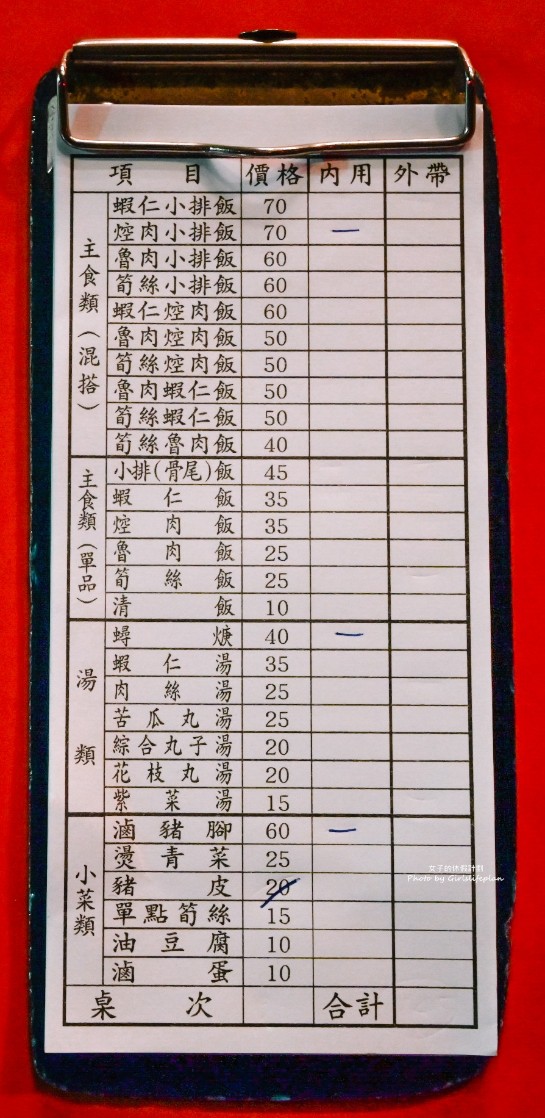 項 目 價格 內用 外帶
主食類（混搭）
蝦仁小排飯 70
焢肉小排飯 70 一
魯肉小排飯 60
筍絲小排飯 60
蝦仁焢肉飯 60
魯肉焢肉飯 50
筍絲焢肉飯 50
魯肉蝦仁飯 50
筍絲蝦仁飯 50
筍絲魯肉飯 40
主食類（單品）
小排(骨尾)飯 45
蝦仁飯 35
焢肉飯 35
魯肉飯 25
筍絲飯 25
清飯 10
湯類
蟳焿 40 一
蝦仁湯 35
肉絲湯 25
苦瓜丸湯 25
綜合丸子湯 20
花枝丸湯 20
紫菜湯 15
小菜類
滷豬腳 60 一
燙青菜 25
豬皮 20
單點筍絲 15
油豆腐 10
滷蛋 10
桌次 合計
女子的休假計劃
Photo by Girlslifeplan